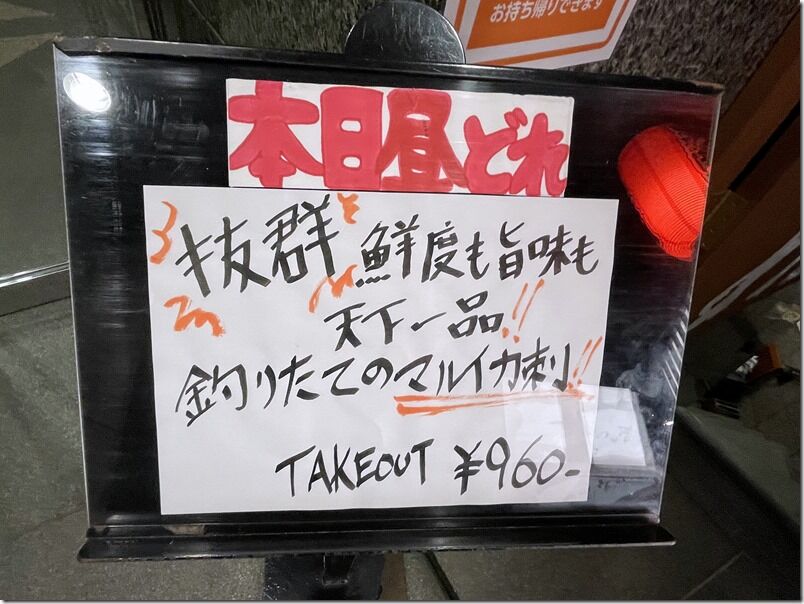 お持ち帰りできます
本日昼どれ
抜群 鮮度も旨味も
天下一品!!
釣りたてのマルイカ刺!!
TAKEOUT ¥960-